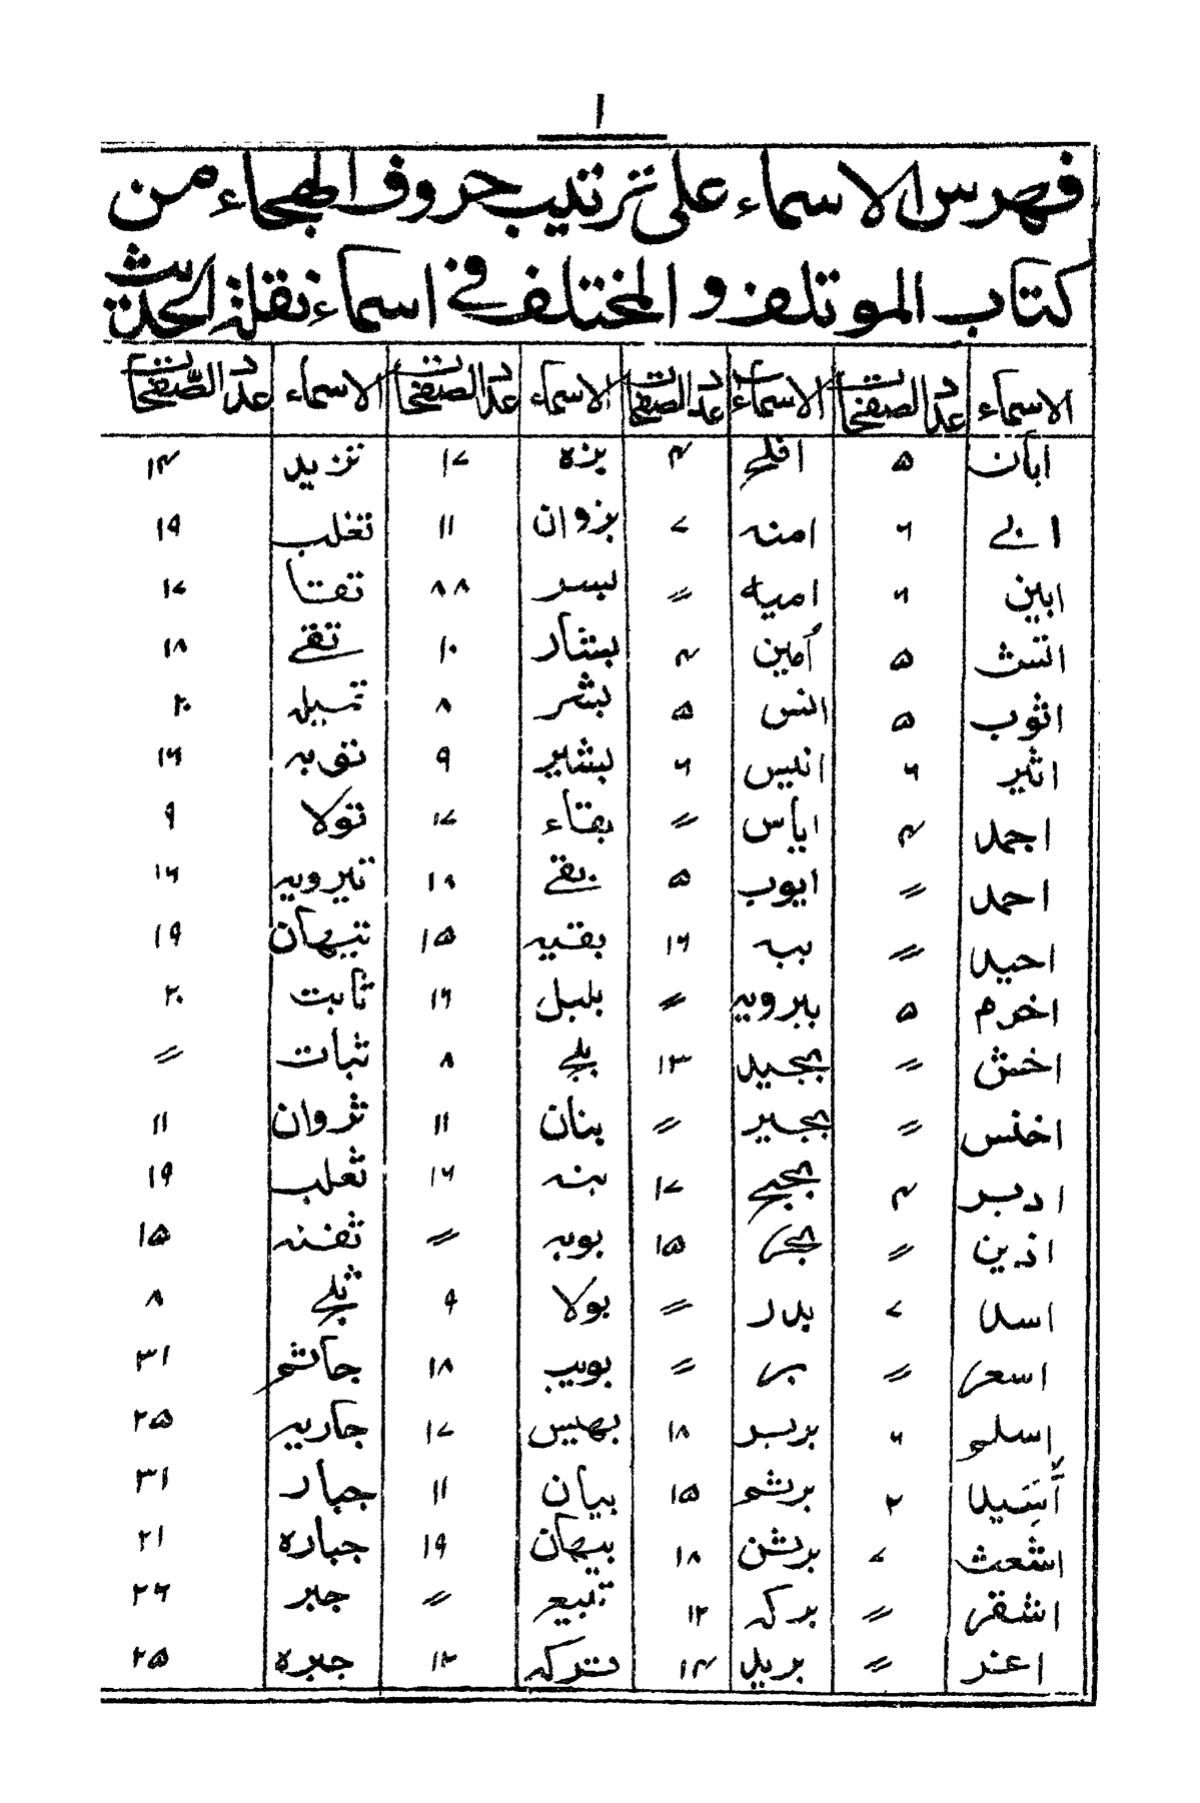 ١
فهرس الاسماء على ترتيب حروف الهجاء من
كتاب الموتلف والمختلف في اسماء نقلة الحديث
الاسماء عدد الصفحات الاسماء عدد الصفحات الاسماء عدد الصفحات الاسماء عدد الصفحات
ابان ٥ افلح ۴ بزه ١٧ تزيد ١۴
ابے ٦ امنه ٧ بزوان ١١ تغلب ١٩
ابين ٦ اميه 〃 بسر ٨٨ ١٧
اتش ٥ أمين ۴ بشار ١٠ تقے ١٨
اثوب ٥ انس ٥ بشر ٨ ٢٠
اثير ٦ انيس ٦ بشير ٩ توبه ١٦
اجمد ۴ اياس 〃 بقاء ١٧ تولا ٩
احمد 〃 ايوب ٥ بقے ١٩ تيرويه ١٦
احيد 〃 ببه ١٦ بقيه ١٥ تيهان ١٩
اخرم ٥ ببرويه 〃 بلبل ١٦ ثابت ٢٠
اخش 〃 بجيد ١٣ بلے ٨ ثبات 〃
اخنس 〃 بجير 〃 بنان ١١ ثروان ١١
ادبر ۴ ١٧ بنه ١٦ ثعلب ١٩
اذين 〃 بجر ١٥ بوبه 〃 ثفنه ١٥
اسد ٧ بدر 〃 بولا ٩ ٨
اسعر 〃 بر 〃 بويب ١٨ جاثم ٣١
اسلم ٦ بربر ١٨ بهيس ١٧ جاريه ٢٥
أسيد ٢ برثم ١٥ بيان ١١ جبار ٣١
اشعث ٧ برثن ١٨ بيهان ١٩ جباره ٢١
اشقر 〃 بركه ١٢ تبيع 〃 جبر ٢٦
اعنز 〃 بريد ١۴ تركه ١٢ جبره ٢٥